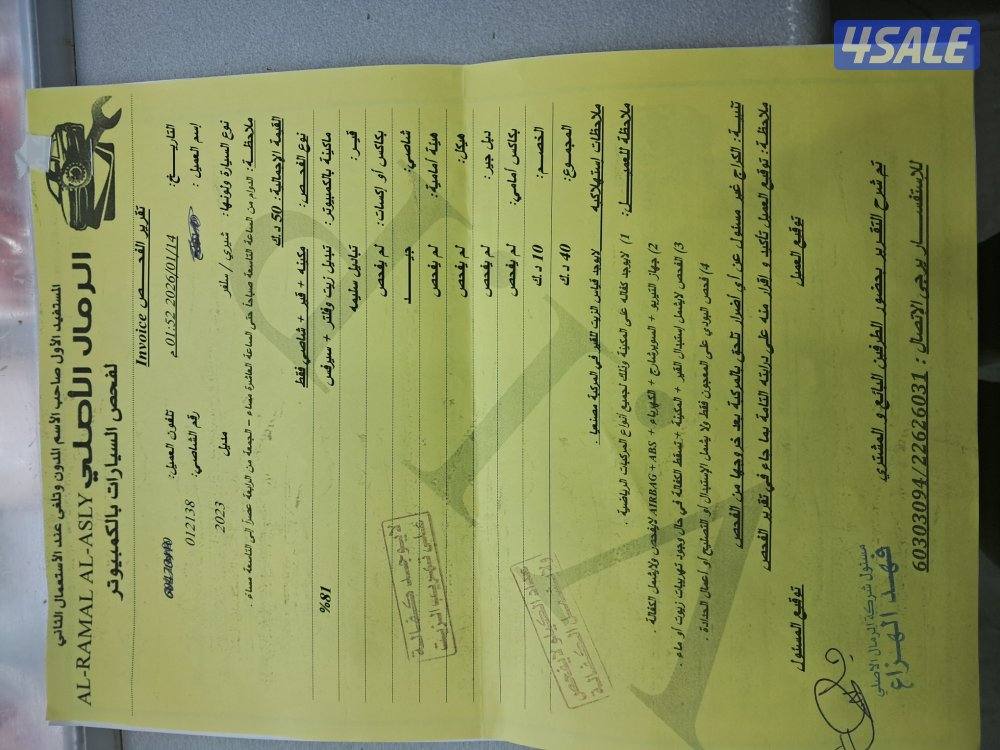 4SALE
المستفيد الأول صاحب الأسم المدون وتلغى عند الأستعمال الثاني
الرمال الأصلي AL-RAMAL AL-ASLY
لفحص السيارات بالكمبيوتر
تقرير الفحص Invoice
التاريخ: 2026/01/14 01:52 م
تلفون العميل:
إسم العميل :
رقم الشاصي: 012138
نوع السيارة ولونها: شيري / سلفر
مديل 2023
ملاحظة: الدوام من الساعة التاسعة صباحا حتى الساعة العاشرة مساء - الجمعة من الرابعة عصرا الى التاسعة مساء .
القيمة الإجمالية: 50 د.ك
نوع الفحص: مكينه + قير + شاصي فقط
ماكينة بالكمبيوتر: تبديل زيت وفلتر + سيرفس %81
قير: تباتيل سليمه
بكاكس أو إكسات: لم يفحص
شاصي: جيد
هيئة أمامية: لم يفحص
هيكل: لم يفحص
دبل جير: لم يفحص
بكاكس أمامي: لم يفحص
الخصم: 10 د.ك
المجموع: 40 د.ك
لايوجد كفالة
على تهريب الزيت
عداد الكيلو لا يفحص
ولا تشمل الكفالة
ملاحظات إستهلاكيه لايوجد قياس الزيت للقير في المركبة مصنعيا .
ملاحظة للعميل: 1) لايوجد كفاله على المكينة وذلك لجميع أنواع المركبات الرياضية .
2) جهاز التيربو + السوبرشارج + الكهرباء + AIRBAG + ABS لايفحص ولايشمل الكفالة .
3) الفحص لايشمل إستبدال القير + المكينة + تسقط الكفالة في حال وجود تهريبات زيوت او ماء .
4) فحص البودي على المعجون فقط ولا يشمل الإستبدال أو التصليح أو أعمال الحدادة .
تنبيه: الكراج غير مسئول عن أي أضرار تلحق بالمركبة بعد خروجها من الفحص
ملاحظة: توقيع العميل تأكيد و إقرار منه على درايته التامة بما جاء في تقرير الفحص
توقيع العميل
توقيع المسئول
مسئول شركة الرمال الاصلي
فهد الهزاع
تم شرح التقرير بحضور الطرفين البائع و المشتري
للإستفسار يرجى الإتصال : 60303094/22626031